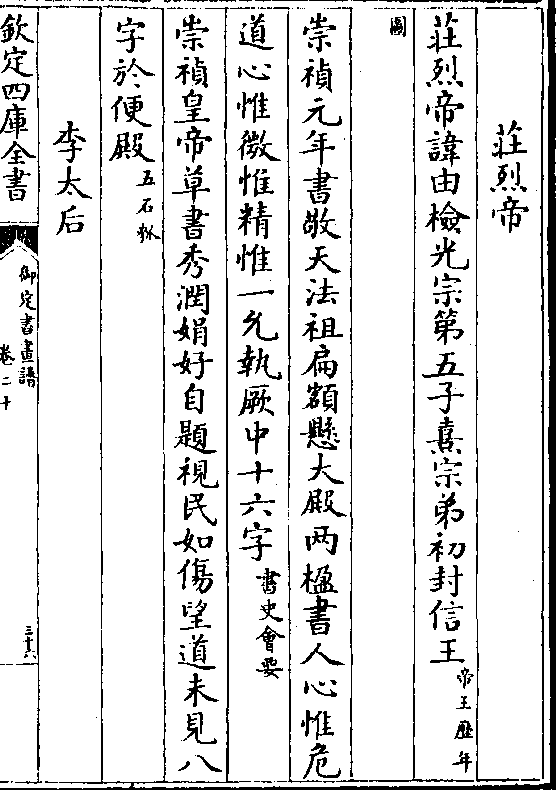 莊烈帝
莊烈帝諱由檢光宗第五子熹宗弟初封信王帝王歴年
圖
崇禎元年書敬天法祖扁額懸大殿两楹書人心惟危
道心惟微惟精惟一允執厥中十六字書史會要
崇禎皇帝草書秀潤娟好自題視民如傷望道未見八
字於便殿五石瓠
李太后
欽定四庫全書
御定書畫譜
卷二十
三十六